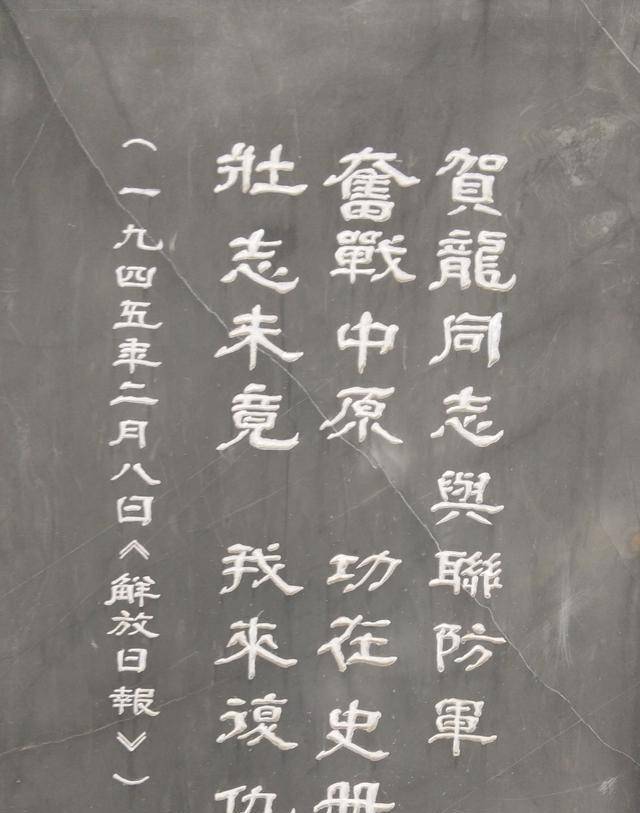 賀龍同志與聯防軍
奮戰中原　功在史册
壯志未竟　我來復仇
（一九四五年二月八日《解放日報》）